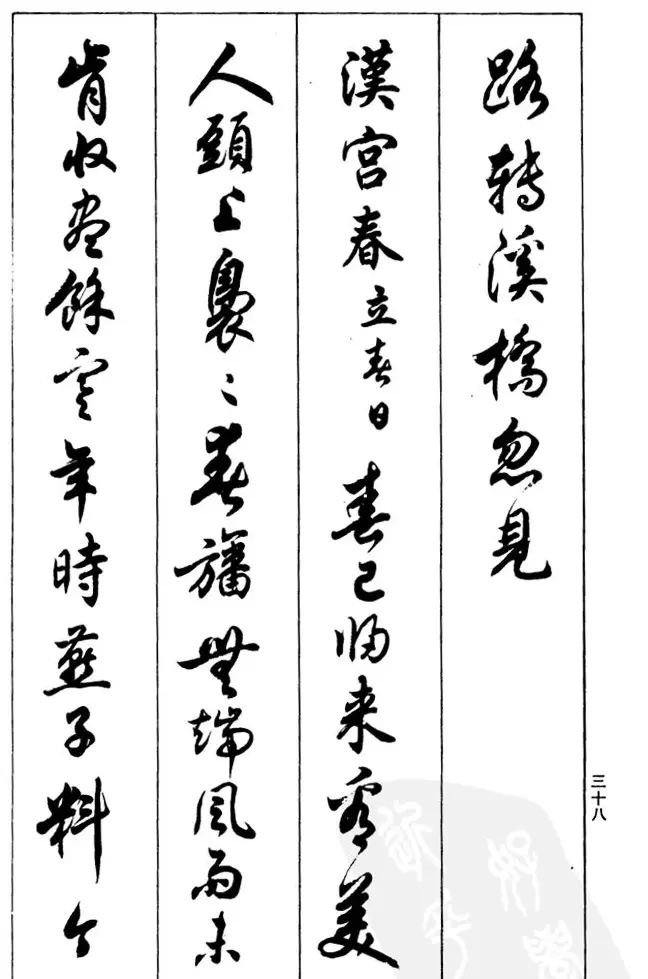 路轉溪橋忽見
漢宮春立春日 春已归来看美
人頭上裊〻春旛無端風雨未
肯收盡餘寒年時燕子料今
三十八